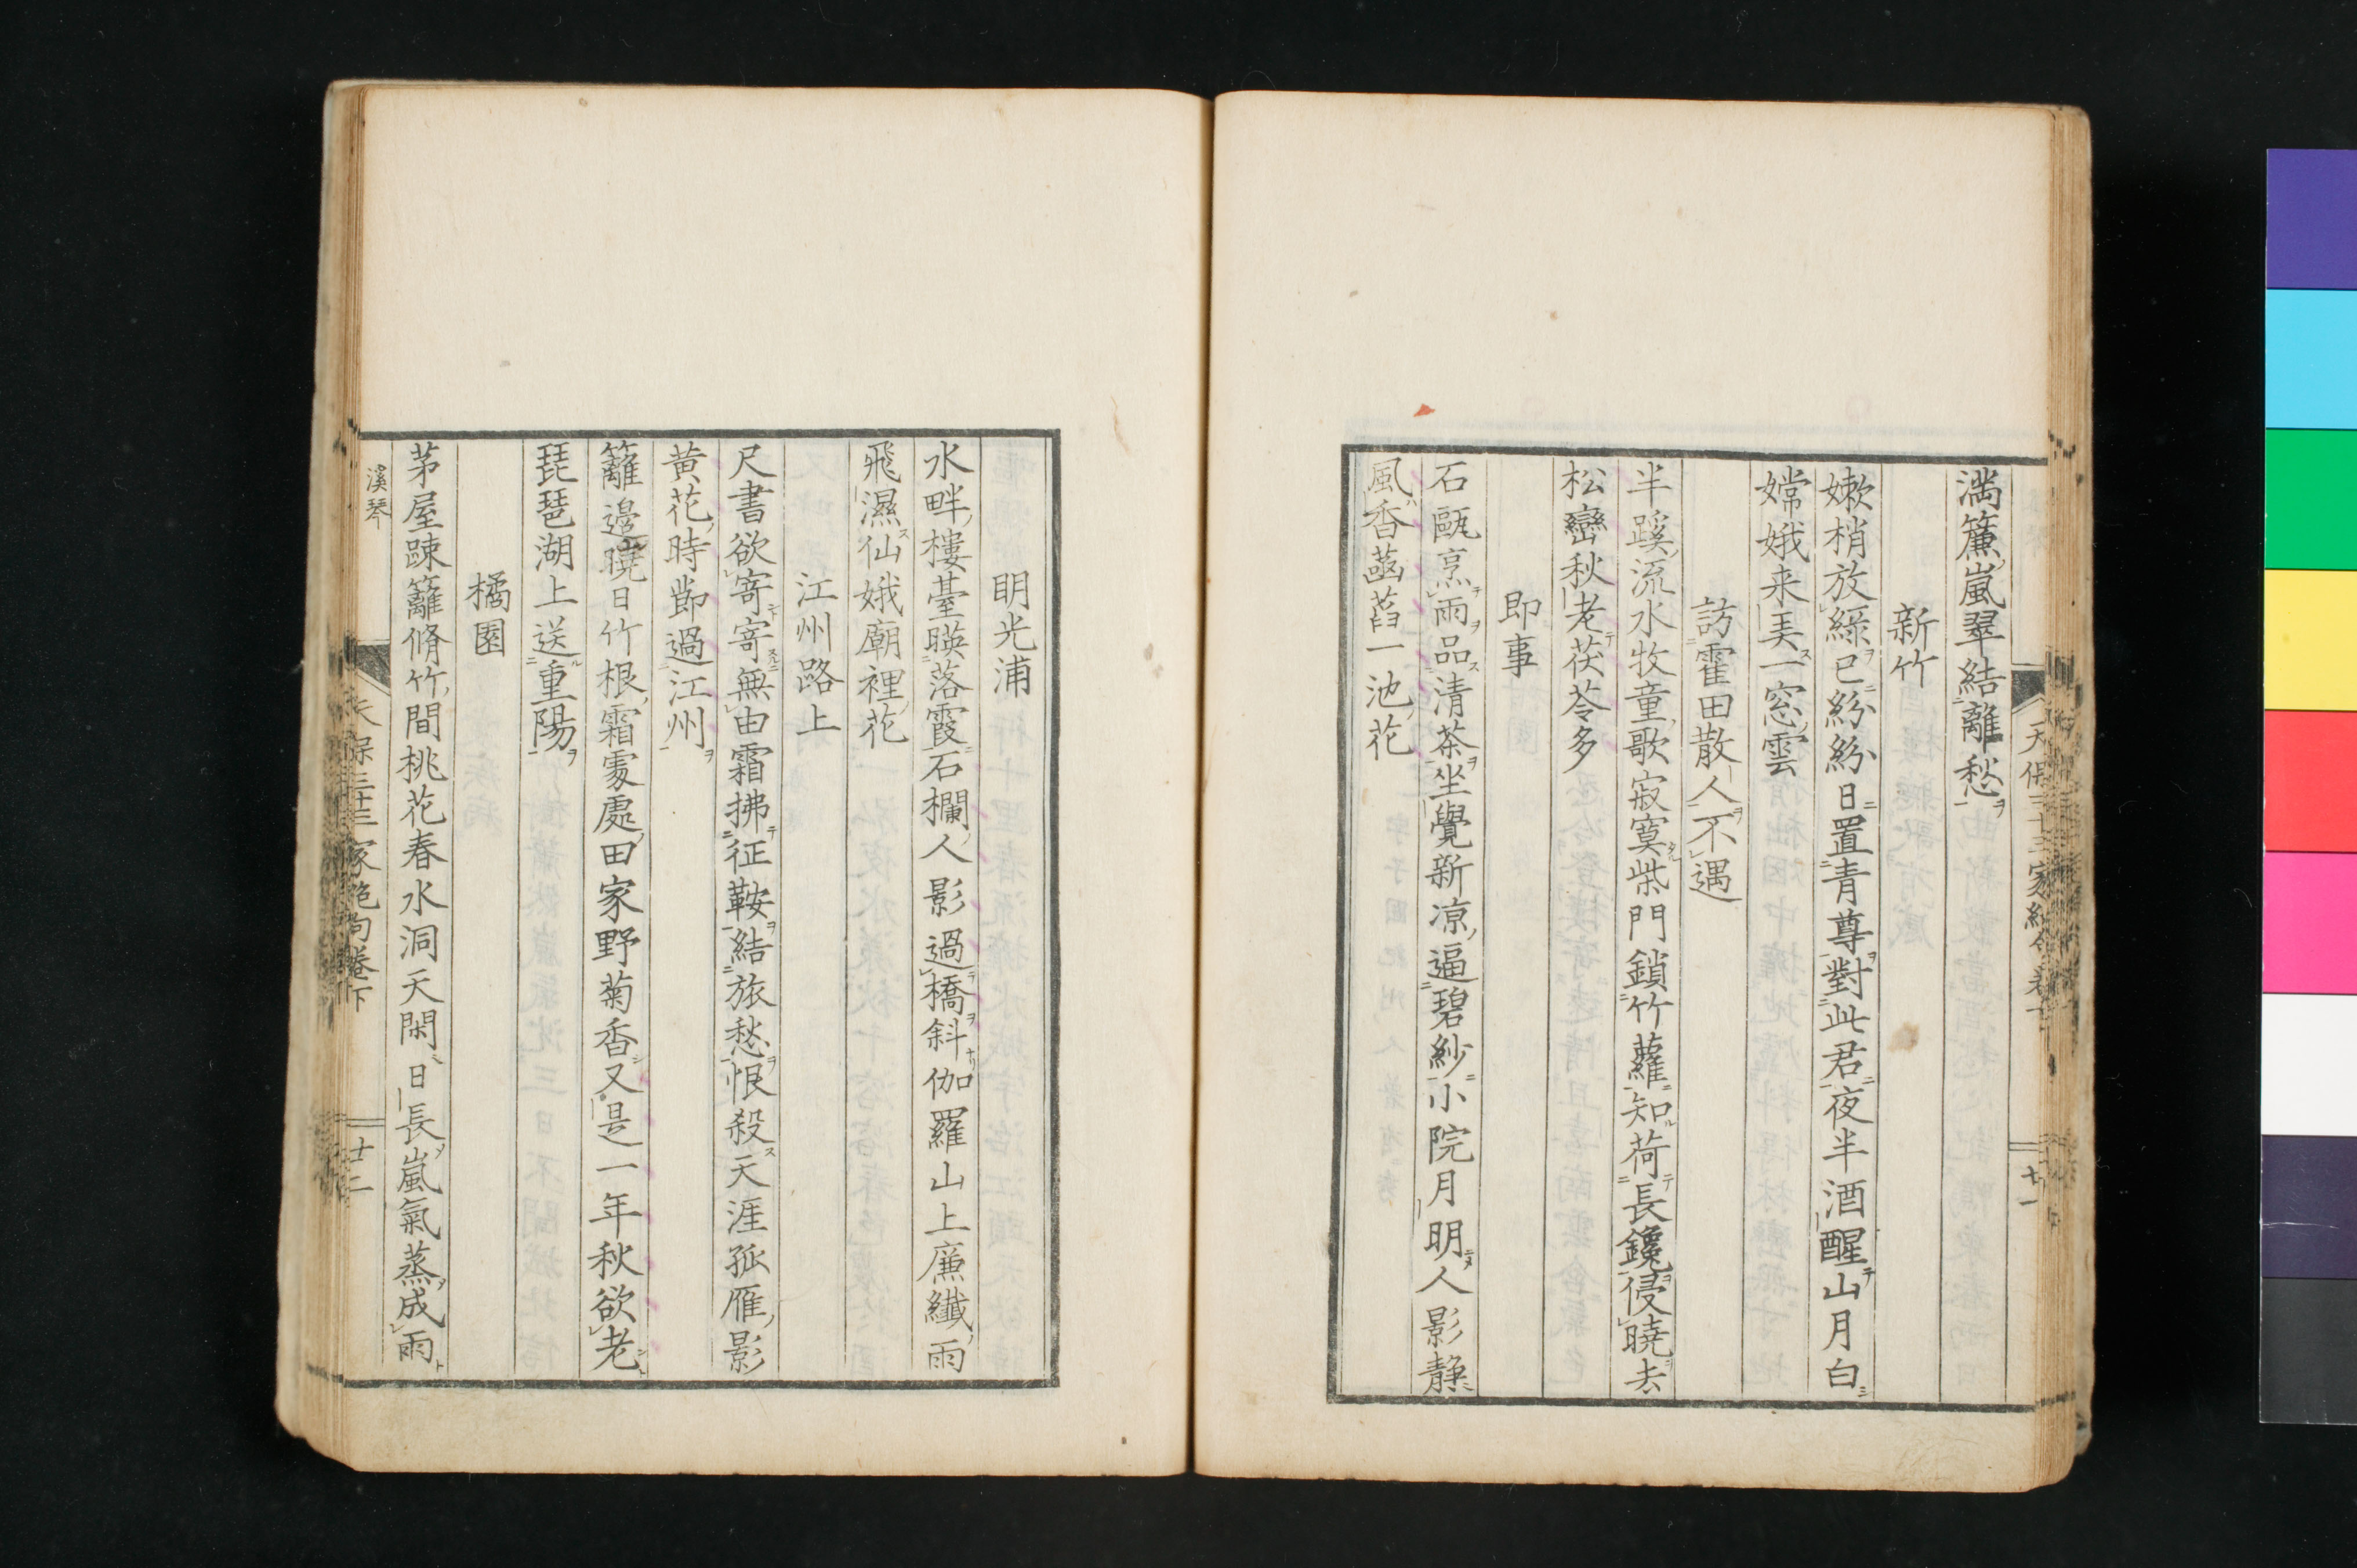 満簾嵐翠結離愁
新竹
嫰梢放綠已紛紛日置青尊對此君夜半酒醒山月白
嫦娥来美一窓雲
訪霍田散人不遇
半蹊流水牧童歌寂寞柴門鎖竹蘿知荷長鑱侵曉去
松巒秋老茯苓多
即事
石甌烹雨品清茶坐覺新凉逼碧紗小院月明人影靜
風香菡萏一池花
天保三十三家絶
十一
明光浦
水畔樓臺暎落霞石欄人影過橋斜伽羅山上廉纖雨
飛濕仙娥廟裡花
江州路上
尺書欲寄寄無由霜拂征鞍結旅愁恨殺天涯孤雁影
黄花時節過江州
籬邊曉日竹根霜處田家野菊香又是一年秋欲老
琵琶湖上送重陽
橘園
茅屋踈籬脩竹間桃花春水洞天閑日長嵐氣蒸成雨
溪琴
天保三十三家絶句卷下
十二